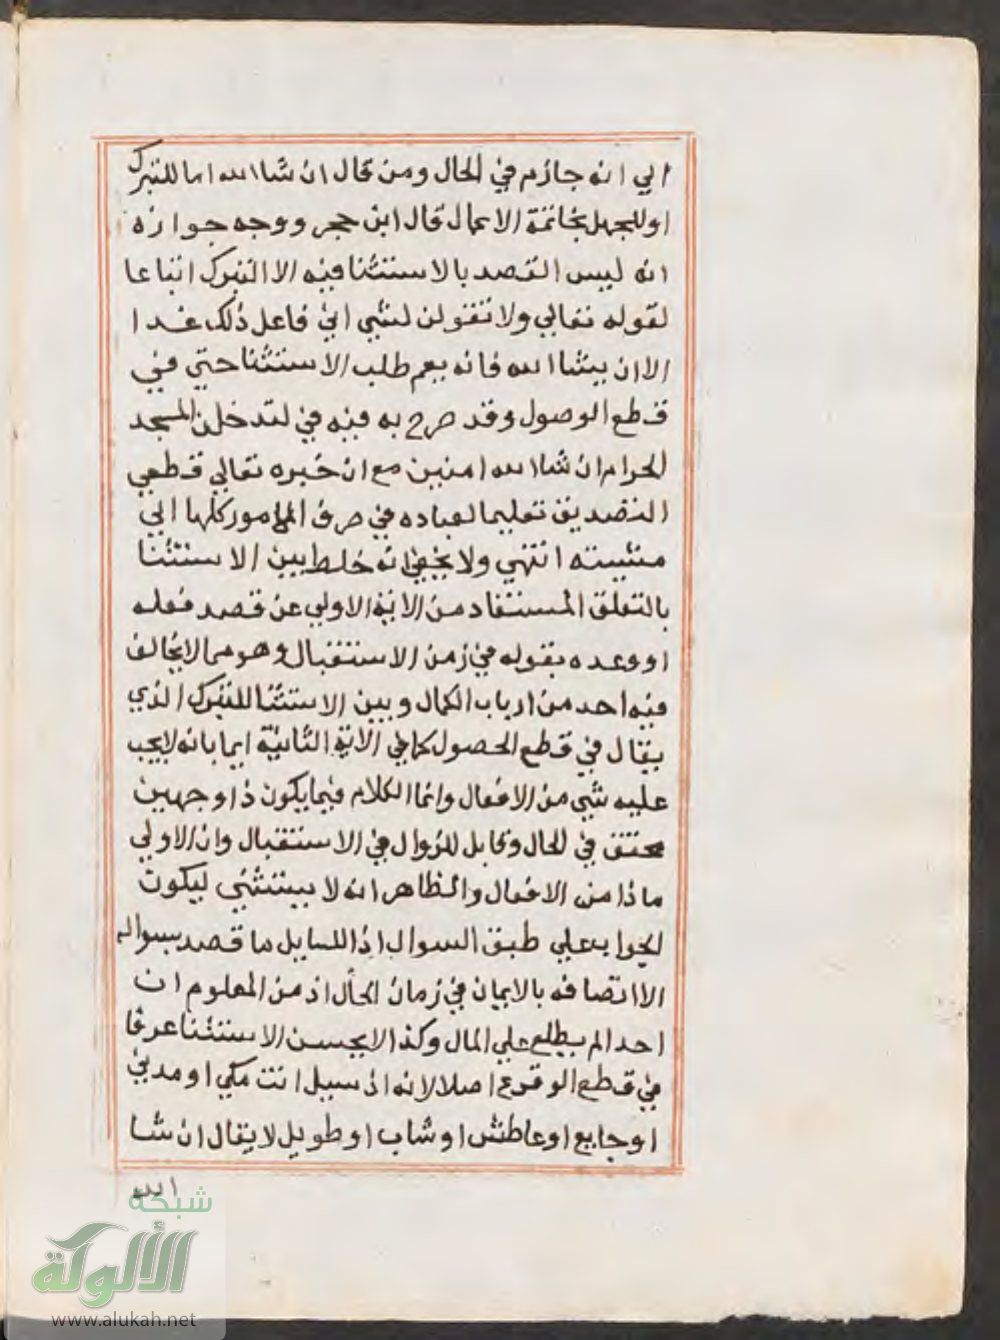 الي انه جازم في الحال ومن قال ان شا الله اما للتبرك
او للجهل بخاتمة الاعمال قال ابن حجر ووجه جوازه
انه ليس القصد بالاستثنا فيه الا التبرك اتباعا
لقوله تعالي ولا تقولن لشي اني فاعل ذلك غدا
الا ان يشا الله فانه يعم طلب الاستثنا حتي في
قطع الوصول وقد صرح به فيه في لتدخلن المسجد
الحرام ان شا الله امنين مع ان خبره تعالي قطعي
التصديق تعليما لعباده في صرف الامور كلها الي
مشيته انتهي ولا يخفي انه خلط بين الاستثنا
بالتعلق المستفاد من الاية الاولي عن قصد فعله
او وعده بقوله في زمن الاستقبال وهو مما لا يخالف
فيه احد من ارباب الكمال وبين الاستثنا للتبرك الذي
يقال في قطع الحصول كما في الاية الثانية ايما بانه لا يجب
عليه شي من الافعال وانما الكلام فيما يكون ذا وجهين
محقق في الحال وقابل للزوال في الاستقبال وان الاولي
ماذا من الافعال والظاهر انه لا يستثني ليكون
الجواب علي طبق السوال اذ السايل ما قصد بسواله
الا اتصافه بالايمان في زمان الحال اذ من المعلوم ان
احدا لم يطلع علي المال وكذا لا يحسن الاستثنا عرفا
في قطع الوقوع اصلا لانه اذ سيل انت مكي او مدني
او جايع او عاطش او شاب او طويل لا يقال ان شا
الله
شبكة
الألوكة
www.alukah.net